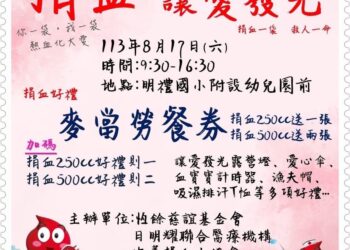 捐血 讓愛發光
你一袋，我一袋
熱血化大愛
捐血一袋 救人一命
113年8月17日(六)
時間:9:30-16:30
地點:明禮國小附設幼兒園前
捐血好禮
麥當勞餐券
捐血250cc送一張
捐血500cc送兩張
加碼
捐血250cc好禮則一
捐血500cc好禮則二
讓愛發光露營燈、愛心傘、
血寶寶計時器、漁夫帽、
吸濕排汗T恤等多項好禮…
主辦單位:恆錄慈誼基金會
日明耀聯合醫療機構